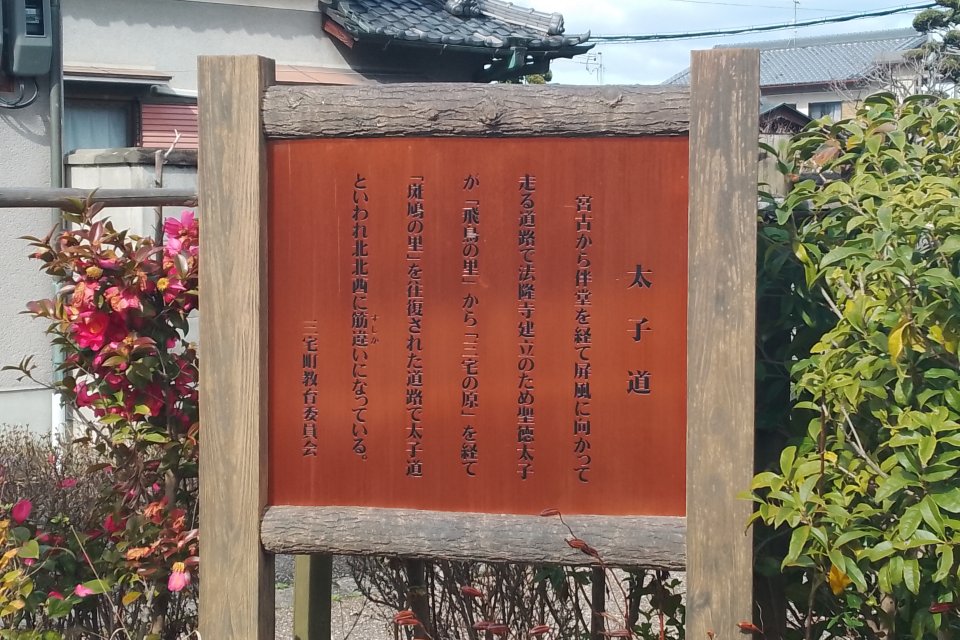 太子道
宮古から伴堂を経て屏風に向かって
走る道路で法隆寺建立のため聖徳太子
が「飛鳥の里」から「三宅の原」を経て
「斑鳩の里」を往復された道路で太子道
といわれ北北西に筋違いになっている。
すじか
三宅町教育委員会